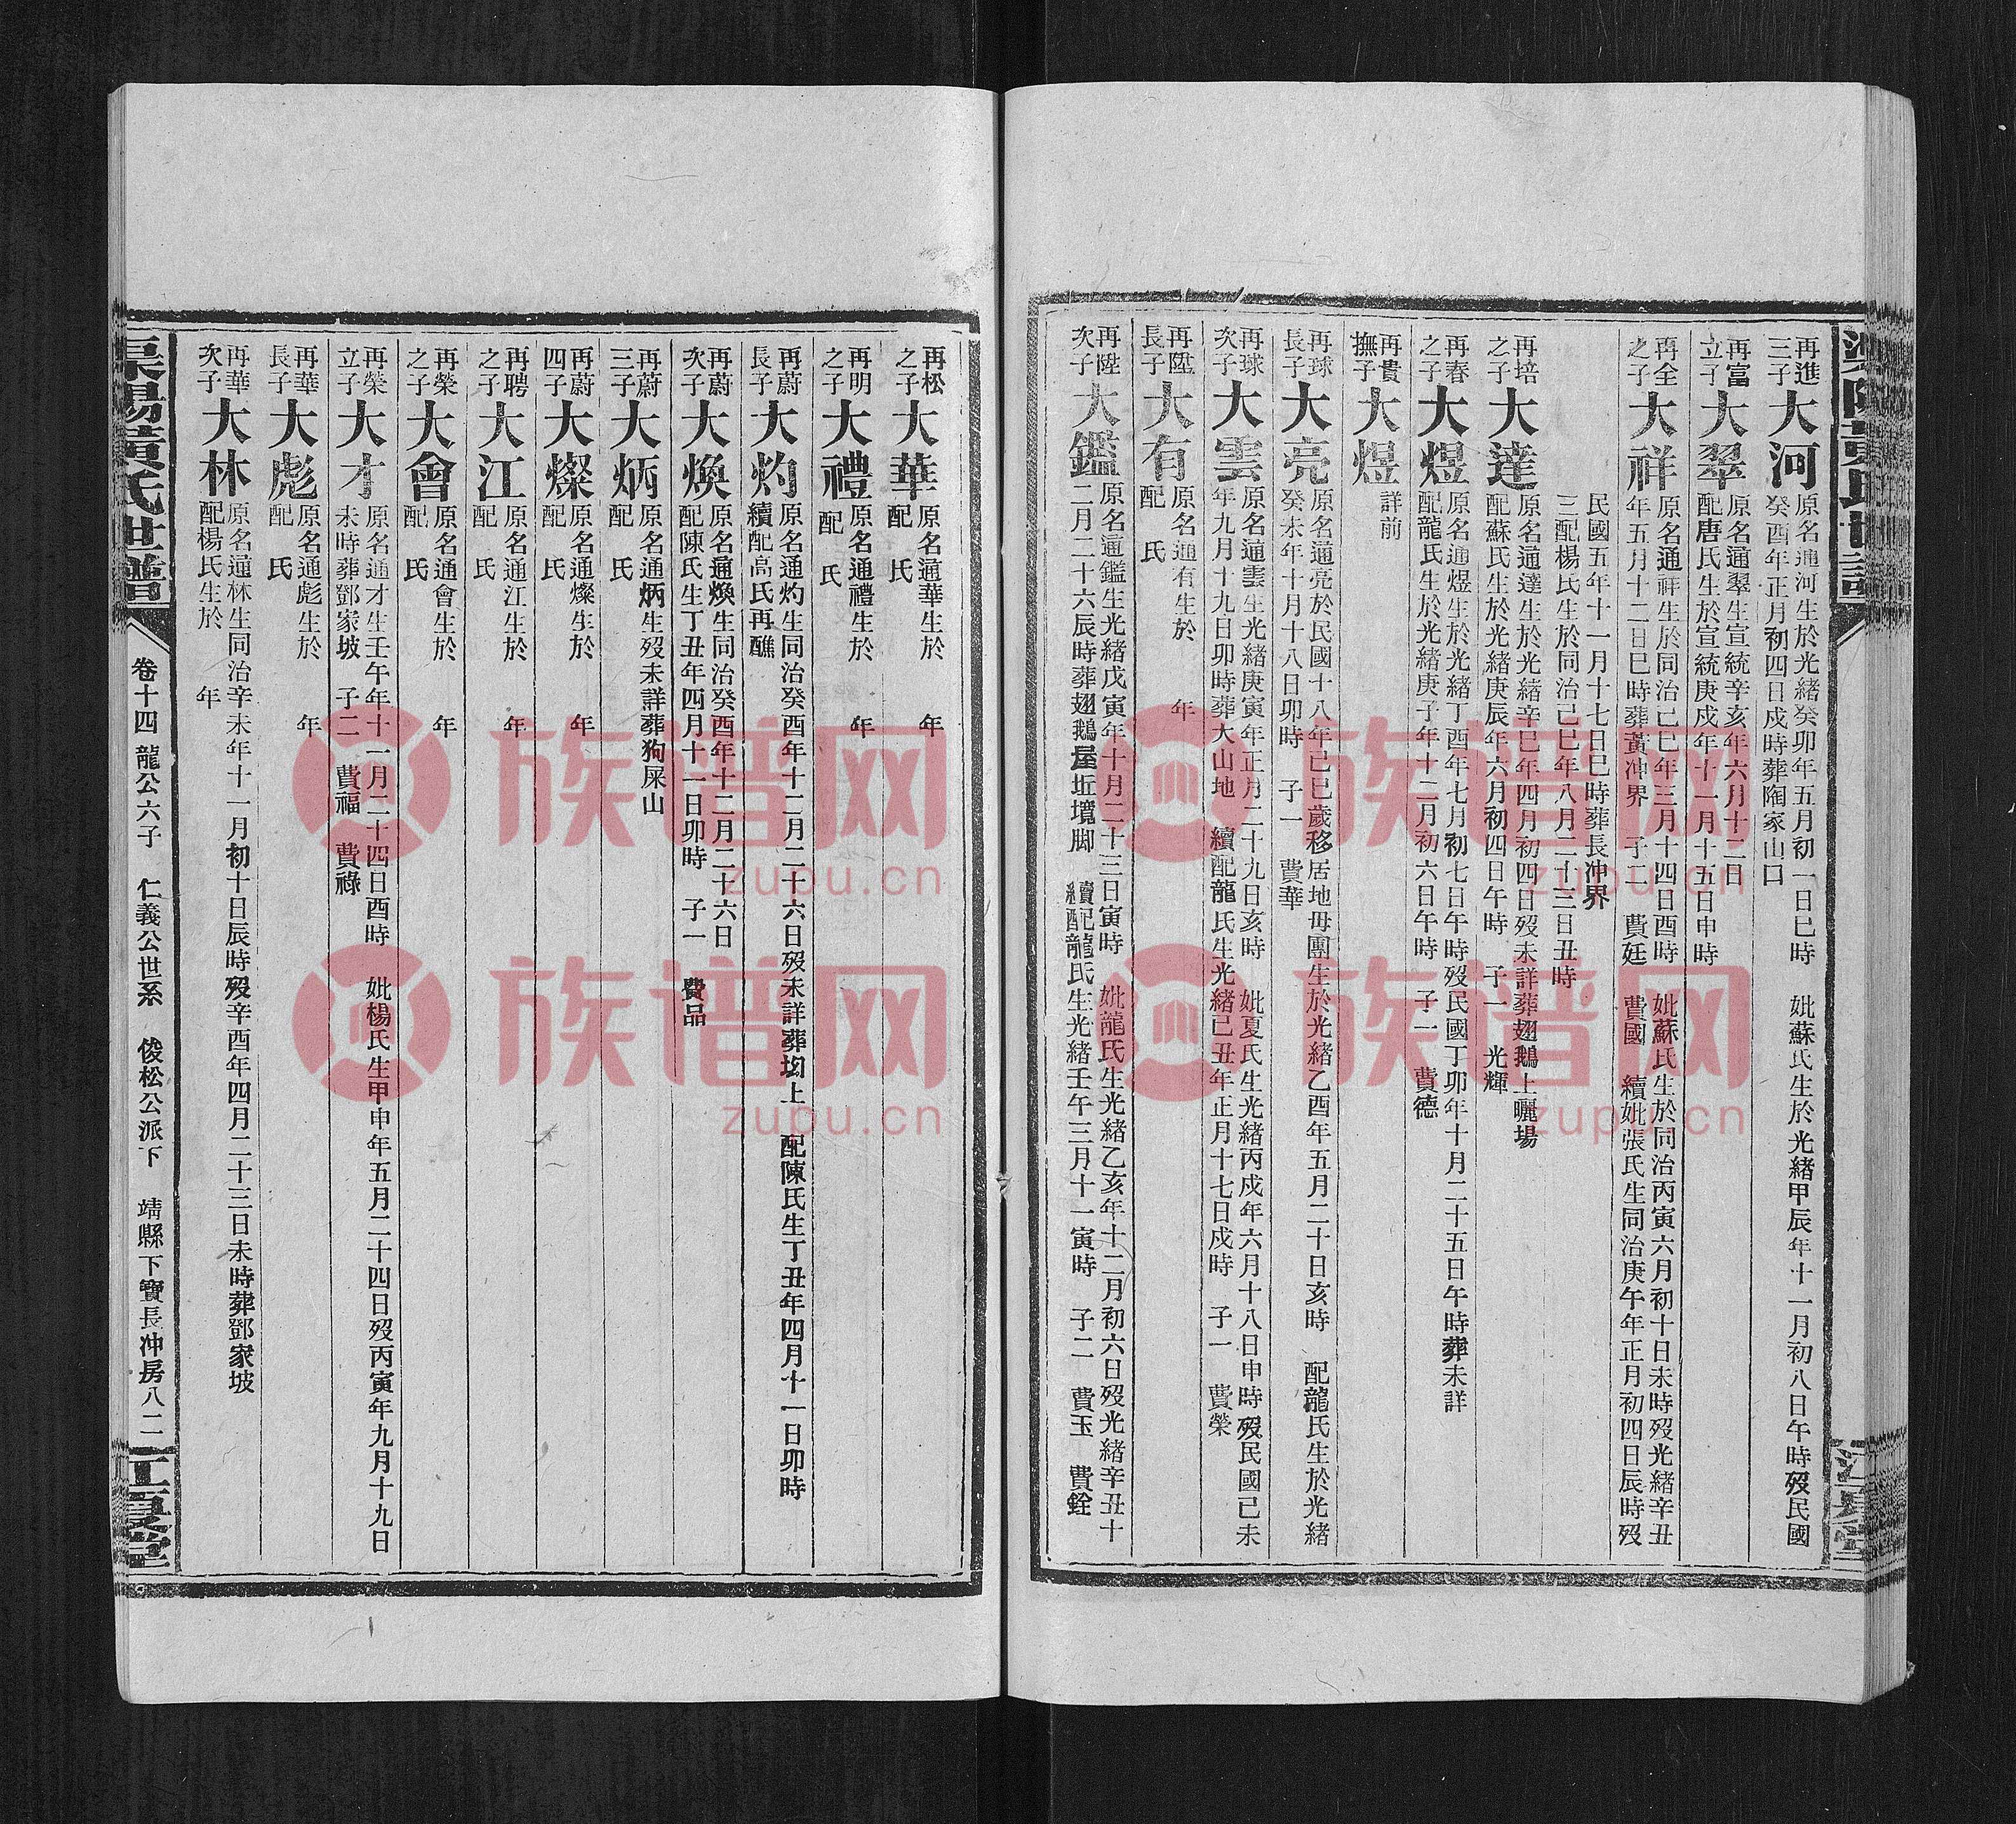 再進三子
大河
原名通河生於光緒癸卯年五月初一日巳時 妣蘇氏生於光緒甲辰年十一月初八日午時歿民國
癸酉年正月初四日戌時葬陶家山口
再富立子
大翠
原名通翠生宣統辛亥年六月十二日
配唐氏生於宣統庚戌年十一月十五日申時
再全之子
大祥
原名通祥生於同治己巳年三月十四日酉時 妣蘇氏生於同治丙寅六月初十日未時歿光緒辛丑
年五月十二日巳時葬黃冲界 子二 費廷 費國 續妣張氏生同治庚午年正月初四日辰時歿
民國五年十一月十七日巳時葬長冲界
三配楊氏生於同治己巳年八月二十三日丑時
再培之子
大達
原名通達生於光緒辛巳年四月初四日歿未詳葬翅鵝上曬場
配蘇氏生於光緒庚辰年六月初四日午時 子一 光輝
再春之子
大煜
原名通煜生於光緒丁酉年七月初七日午時歿民國丁卯年十月二十五日午時葬未詳
配龍氏生於光緒庚子年十二月初六日午時 子一 費德
再貴撫子
大煜
詳前
再球長子
大亮
原名通亮於民國十八年己巳歲移居地毋團生於光緒乙酉年五月二十日亥時 配龍氏生於光緒
癸未年十月十八日卯時 子一 費華
再球次子
大雲
原名通雲生光緒庚寅年正月二十九日亥時 妣夏氏生光緒丙戌年六月十八日申時歿民國己未
年九月十九日卯時葬大山地 續配龍氏生光緒己丑年正月十七日戌時 子一 費榮
再陞長子
大有
原名通有生於 年
配 氏
再陞次子
大鑑
原名通鑑生光緒戊寅年十月二十三日寅時 妣龍氏生光緒乙亥年十二月初六日歿光緒辛丑十
二月二十六辰時葬翅鵝屋坵塆脚 續配龍氏生光緒壬午三月十一寅時 子二 費玉 費銓
再松之子
大華
原名通華生於 年
配 氏
再明之子
大禮
原名通禮生於 年
配 氏
再蔚長子
大灼
原名通灼生同治癸酉年十二月二十六日歿未詳葬坳上 配陳氏生丁丑年四月十一日卯時
續配高氏再醮
再蔚次子
大煥
原名通煥生同治癸酉年十二月二十六日
配陳氏生丁丑年四月十一日卯時 子一 費品
再蔚三子
大炳
原名通炳生歿未詳葬狗屎山
配 氏
再蔚四子
大燦
原名通燦生於 年
配 氏
再聘之子
大江
原名通江生於 年
配 氏
再榮之子
大會
原名通會生於 年
配 氏
再榮立子
大才
原名通才生壬午年十一月二十四日酉時 妣楊氏生甲申年五月二十四日歿丙寅年九月十九日
未時葬鄧家坡 子二 費福 費祿
再華長子
大彪
原名通彪生於 年
配 氏
再華次子
大林
原名通林生同治辛未年十一月初十日辰時歿辛酉年四月二十三日未時葬鄧家坡
配楊氏生於 年
渠陽黃氏世譜
卷十四 龍公六子 仁義公世系 俊松公派下 靖縣下寶長冲房 八二
江夏堂
族谱网
zupu.cn
族谱网
zupu.cn
族谱网
zupu.cn
族谱网
zupu.cn